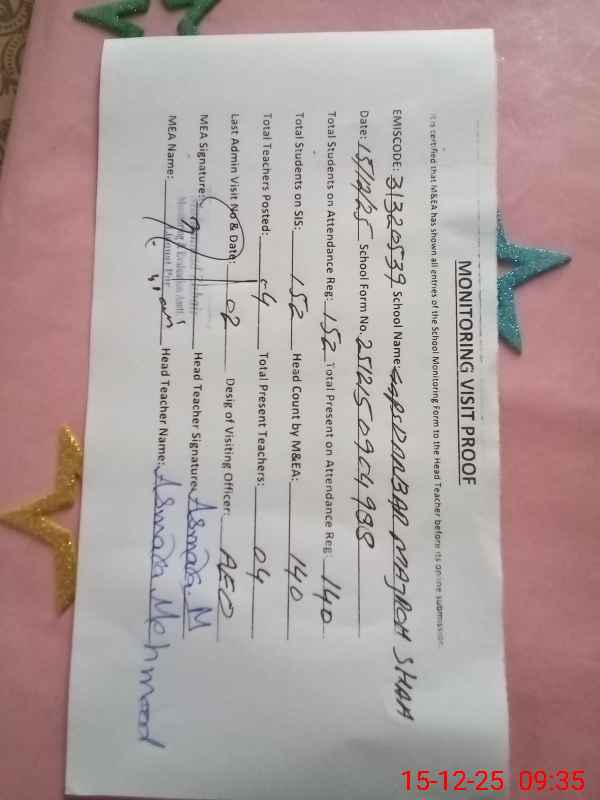 MONITORING VISIT PROOF
It is certified that M&EA has shown all entries of the School Monitoring Form to the Head Teacher before its online submission
EMISCODE: 31320539 School Name: DARBAR SHAH
Date: 15/12/25 School Form No. 2512150904988
Total Students on Attendance Reg: 152 Total Present on Attendance Reg: 140
Total Students on SIS: 152 Head Count by M&EA: 140
Total Teachers Posted: 04 Total Present Teachers: 04
Last Admin Visit No & Date: 02 Desig of Visiting Officer: AEO
MEA Signature: Head Teacher Signature: Asmara M
Monitoring & Evaluation Asstt
MEA Name: Head Teacher Name: Asmara Mehmood
15-12-25 09:35